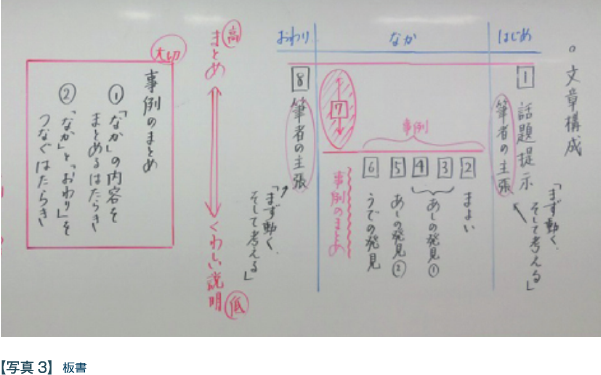 ○文章構成
はじめ
なか
おわり
1 話題提示
筆者の主張
「まず動く、
そして考える」
事例
2 まよい
3 4 あしの発見①
5 あしの発見②
6 うでの発見
7
事例のまとめ
8 筆者の主張
「まず動く、
そして考える」
高
まとめ
くわしい説明
低
大切
事例のまとめ
①「なか」の内容を
まとめるはたらき
②「なか」と「おわり」を
つなぐはたらき
【写真3】 板書